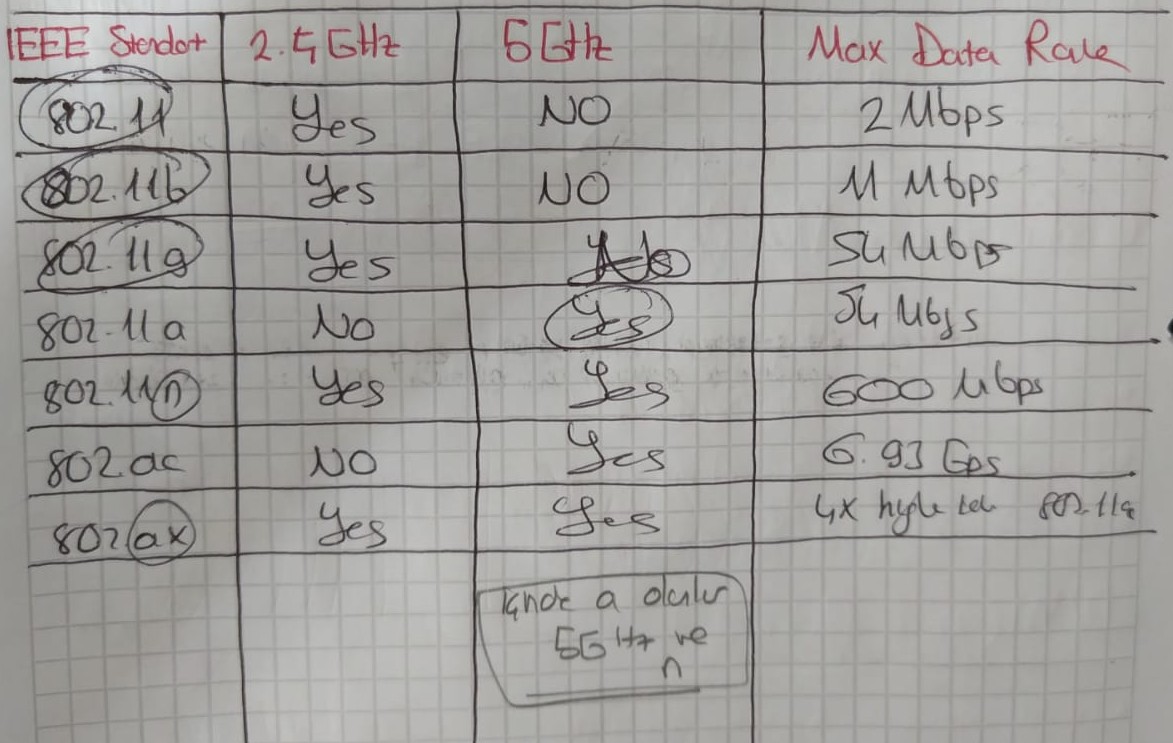 IEEE Standart 2.4 GHz 5 GHz Max Data Rate
802.11 Yes NO 2 Mbps
802.11b Yes NO 11 Mbps
802.11g Yes 54 Mbps
802.11a NO Yes 54 Mbps
802.11n Yes Yes 600 Mbps
802 ac NO Yes 6.93 Gps
802 ax Yes Yes 4x 802.11a
a olanlar
5GHz ve
n